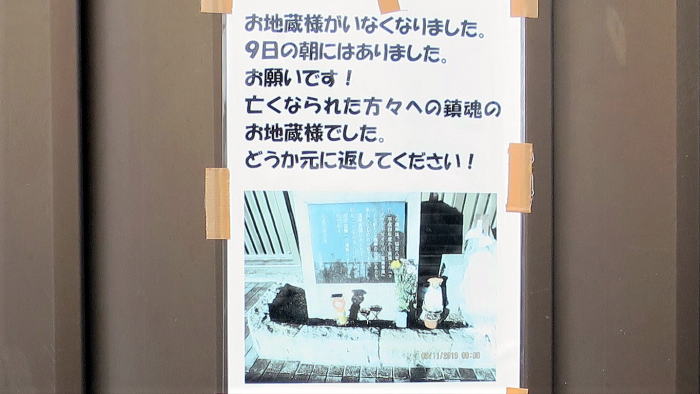 お地蔵様がいなくなりました。
９日の朝にはありました。
お願いです！
亡くなられた方々への鎮魂の
お地蔵様でした。
どうか元に返してください！